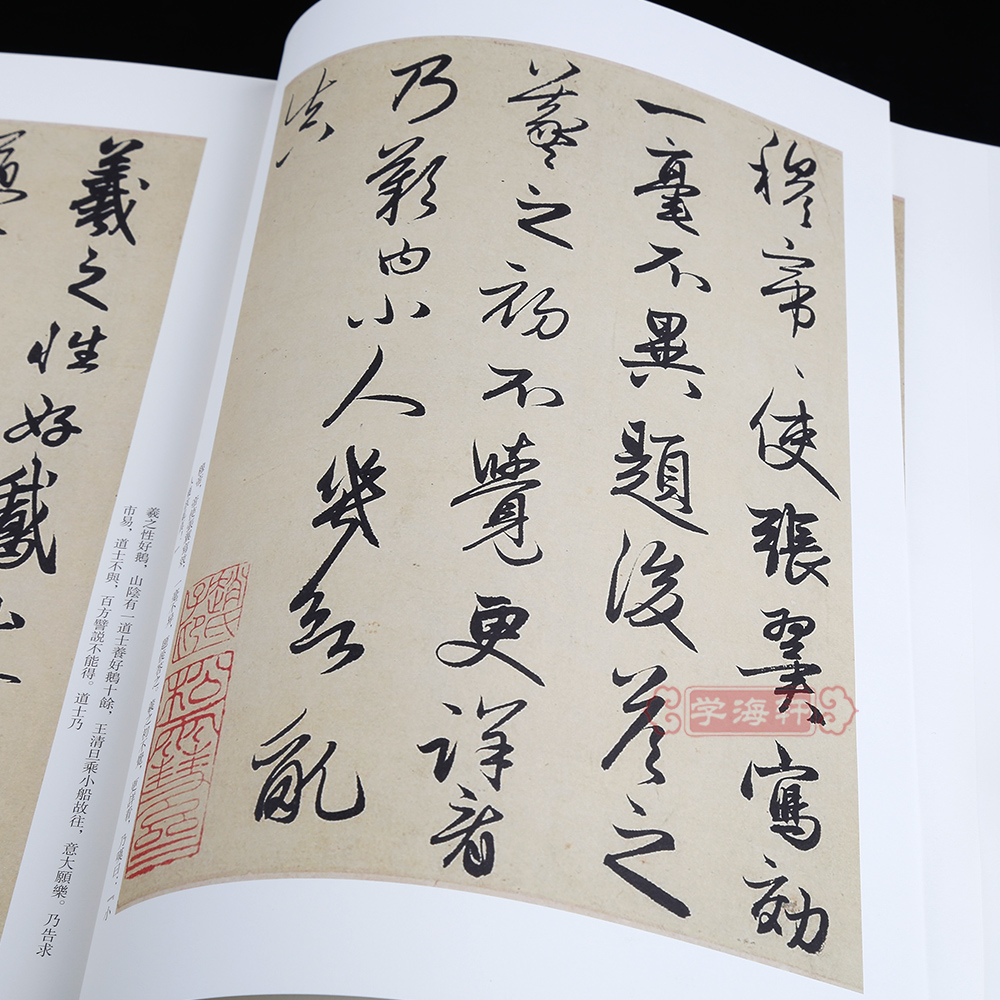 穆帝、使張翼寫効
一毫不異題後答之
羲之初不覺更詳看
乃歎曰小人幾欲亂
真
羲之性好鵞
羲之性好鵝，山陰有一道士養好鵝十餘，王清旦乘小船故往，意大願樂。乃告求
市易，道士不與，百方譬說不能得。道士乃
学海轩